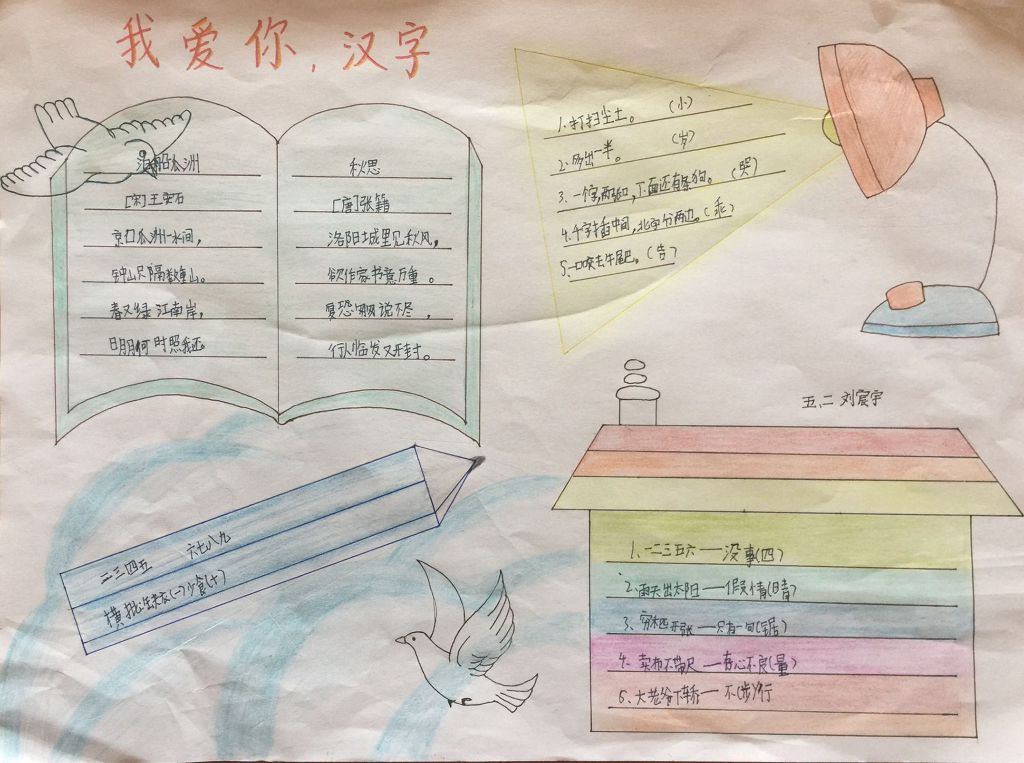 我爱你,汉字
泊船瓜洲
[宋]王安石
京口瓜洲一水间,
钟山只隔数重山。
春又绿江南岸,
明月何时照我还。
秋思
[唐]张籍
洛阳城里见秋风,
欲作家书意万重。
复恐匆匆说不尽,
行人临发又开封。
1、打扫尘土。(小)
2、多出一半。(岁)
3、一个字,两张口,下面还有条狗。(哭)
4、千字插中间,北字分两边。(乖)
5、一口咬去牛尾巴。(告)
五、二 刘宸宇
二三四五 六七八九
横批:缺衣(一)少食(十)
1、一二三五六——没事(四)
2、雨天出太阳——假情(晴)
3、穷木匠开张——只有一句(锯)
4、卖布不带尺——存心不良(量)
5、大老爷下轿——不(步)行